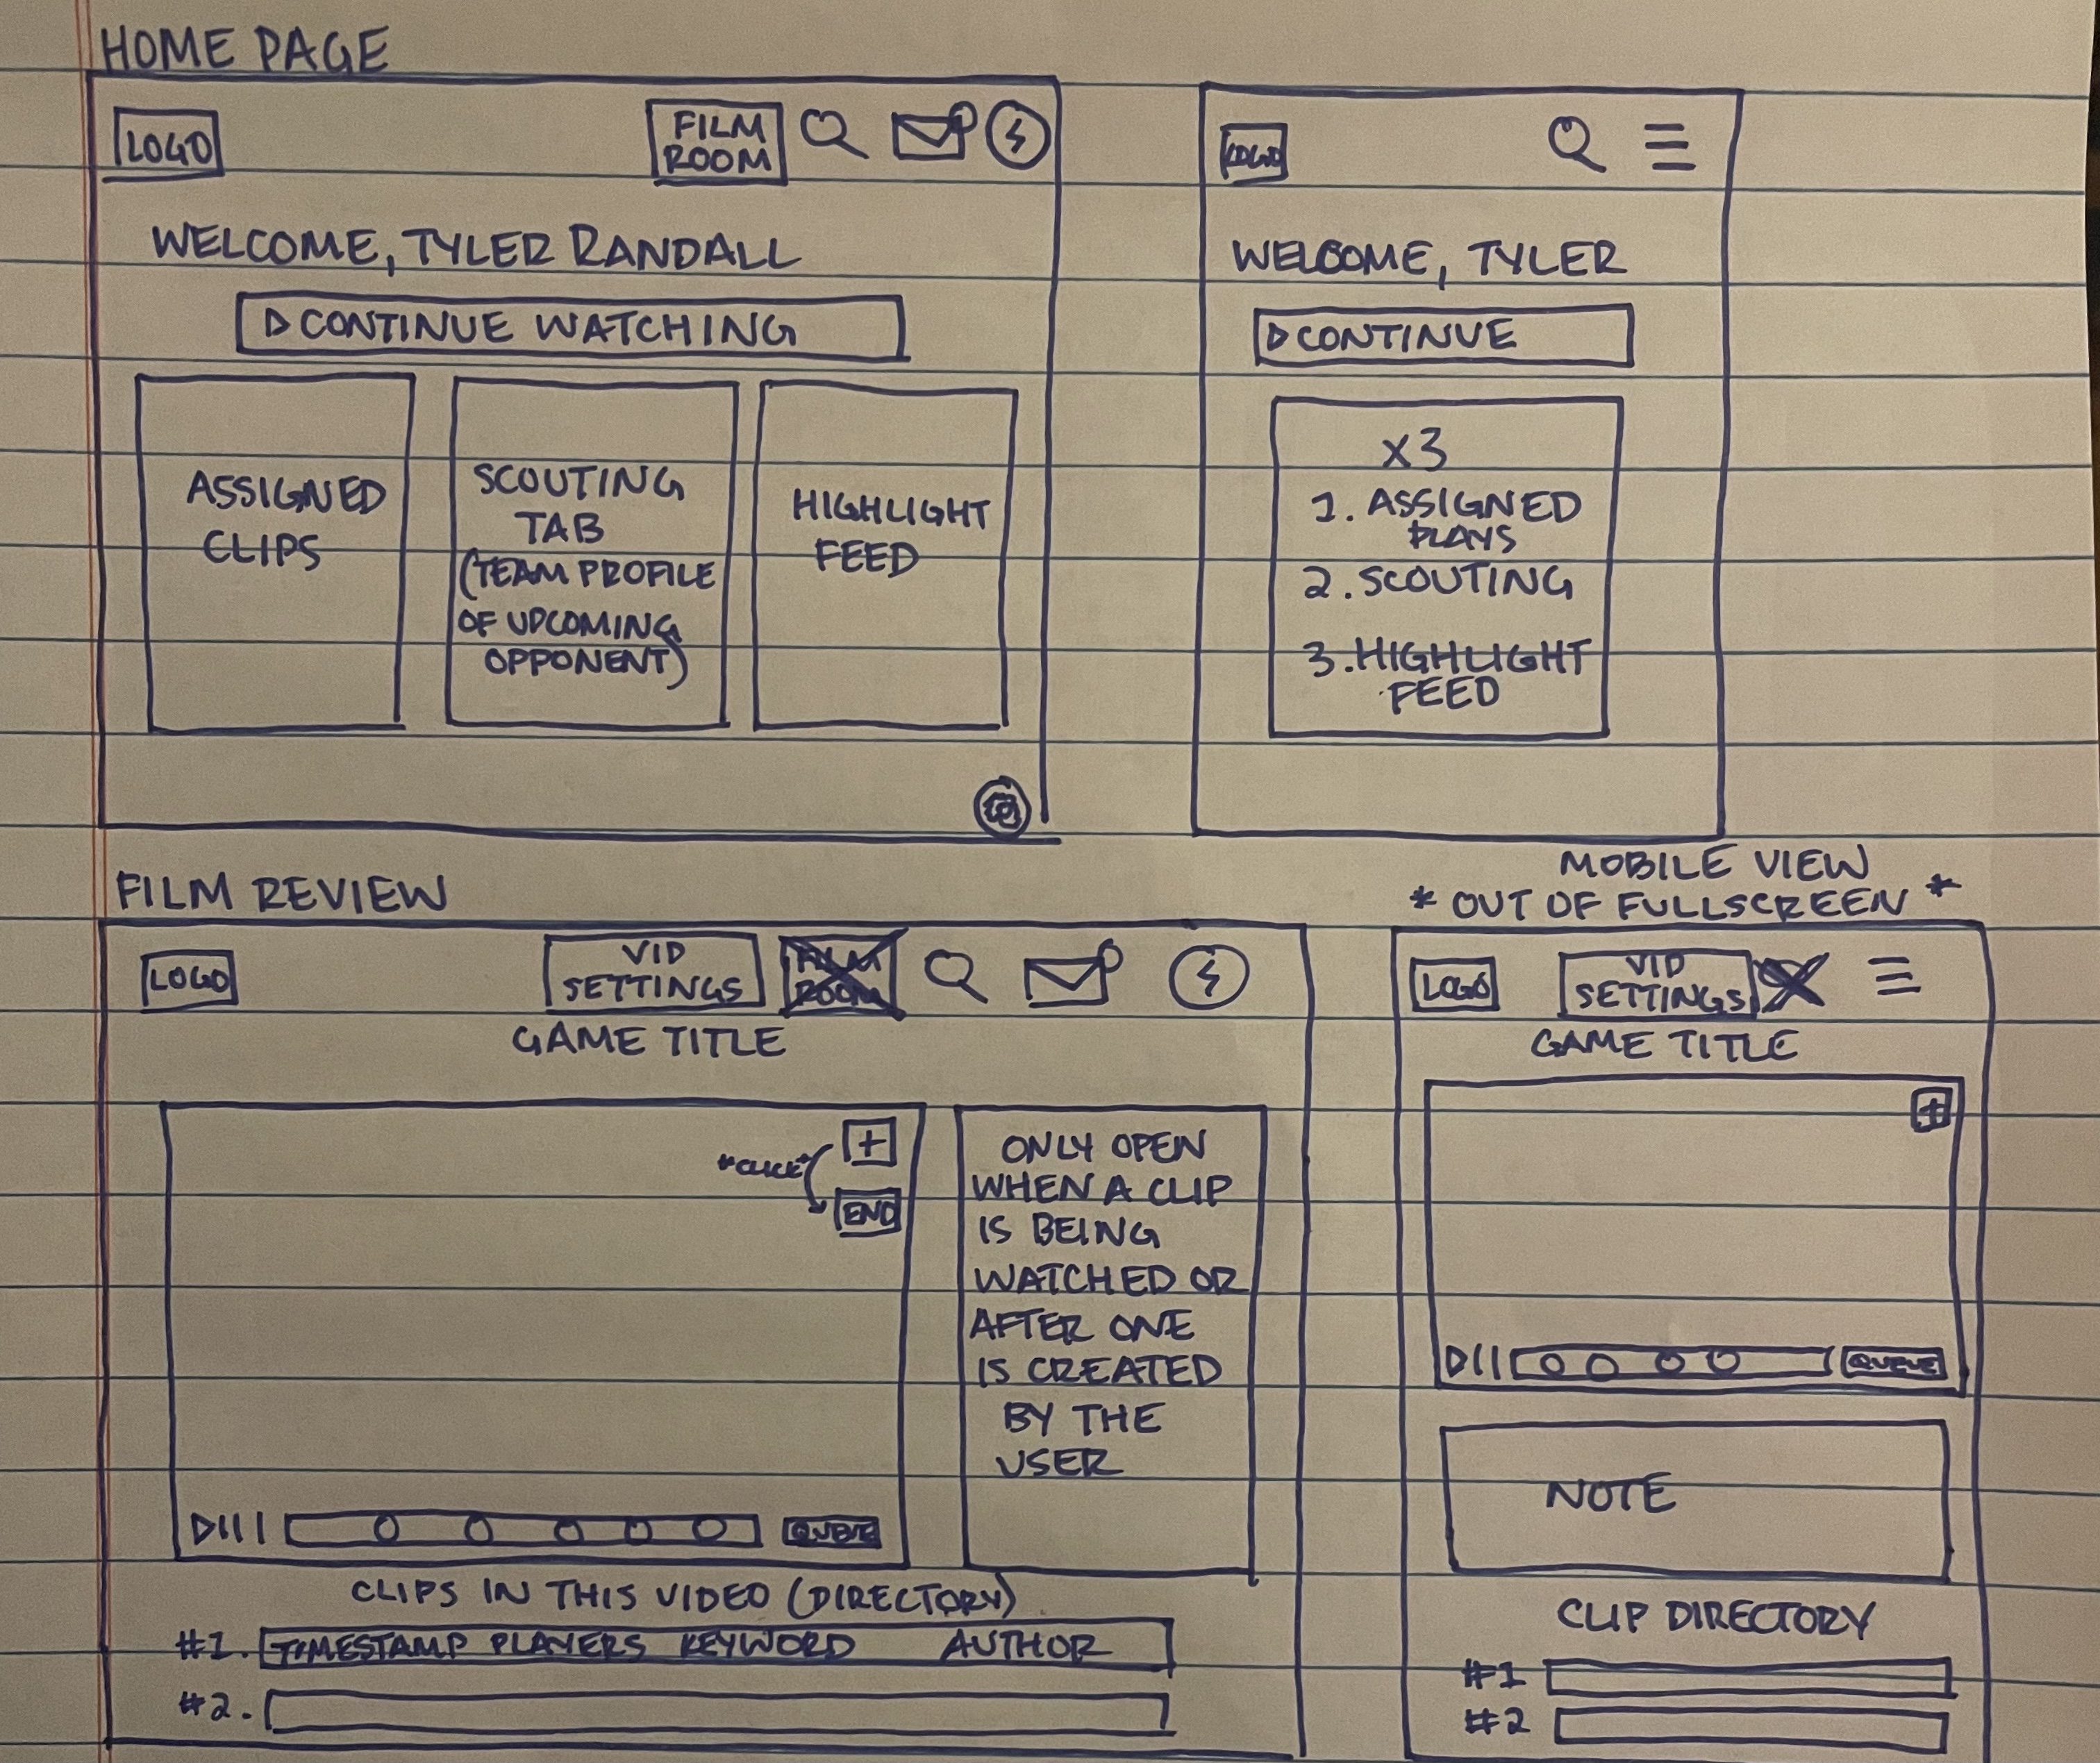 HOME PAGE
LOGO
FILM
ROOM
WELCOME, TYLER RANDALL
CONTINUE WATCHING
ASSIGNED
CLIPS
SCOUTING
TAB
(TEAM PROFILE
OF UPCOMING
OPPONENT)
HIGHLIGHT
FEED
LOGO
WELCOME, TYLER
CONTINUE
x3
1. ASSIGNED
PLAYS
2. SCOUTING
3. HIGHLIGHT
FEED
FILM REVIEW
LOGO
VID
SETTINGS
FILM
ROOM
GAME TITLE
+
"CLICK"
END
ONLY OPEN
WHEN A CLIP
IS BEING
WATCHED OR
AFTER ONE
IS CREATED
BY THE
USER
QUEUE
CLIPS IN THIS VIDEO (DIRECTORY)
#1. TIMESTAMP PLAYERS KEYWORD AUTHOR
#2.
MOBILE VIEW
* OUT OF FULLSCREEN *
LOGO
VID
SETTINGS
GAME TITLE
+
QUEUE
NOTE
CLIP DIRECTORY
#1
#2